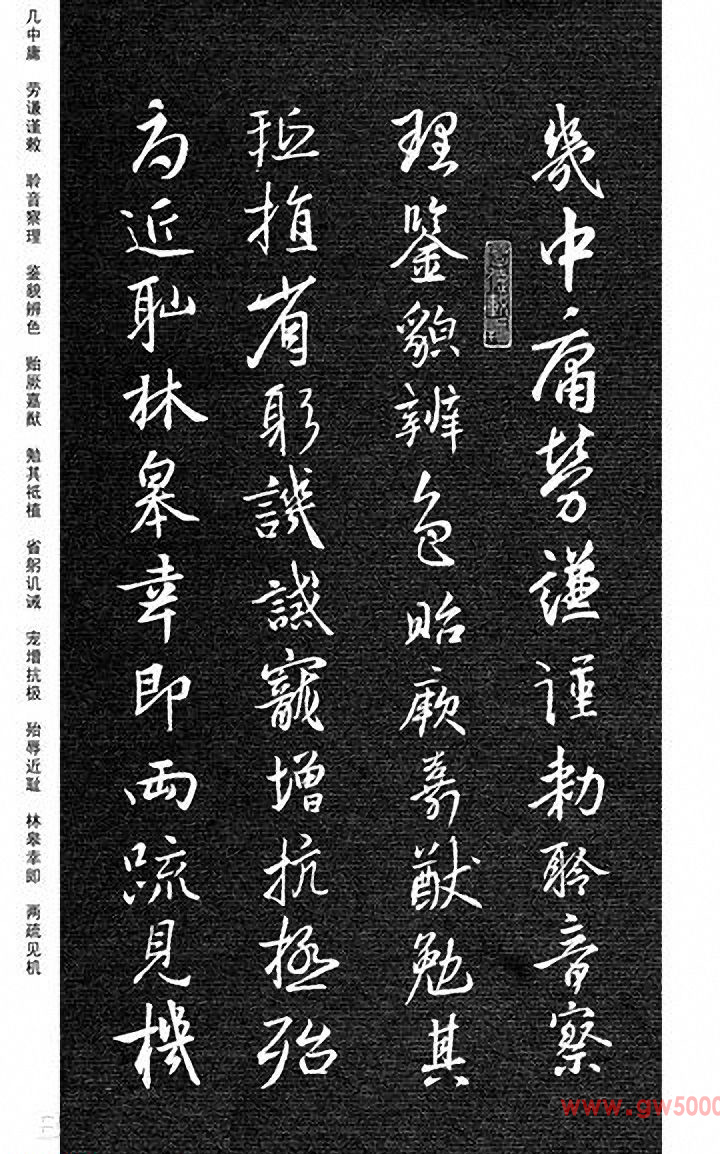 幾中庸勞謙謹勅聆音察
理鑒貌辨色貽厥嘉猷勉其
祗植省躬譏誡寵增抗極殆
辱近耻林皋幸即兩疏見機
几中庸 劳谦谨敕 聆音察理 鉴貌辨色 贻厥嘉猷 勉其祗植 省躬讥诫 宠增抗极 殆辱近耻 林皋幸即 两疏见机
www.gw5000